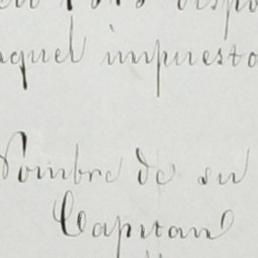 aquel impuesto
Nombre de su
Capitan